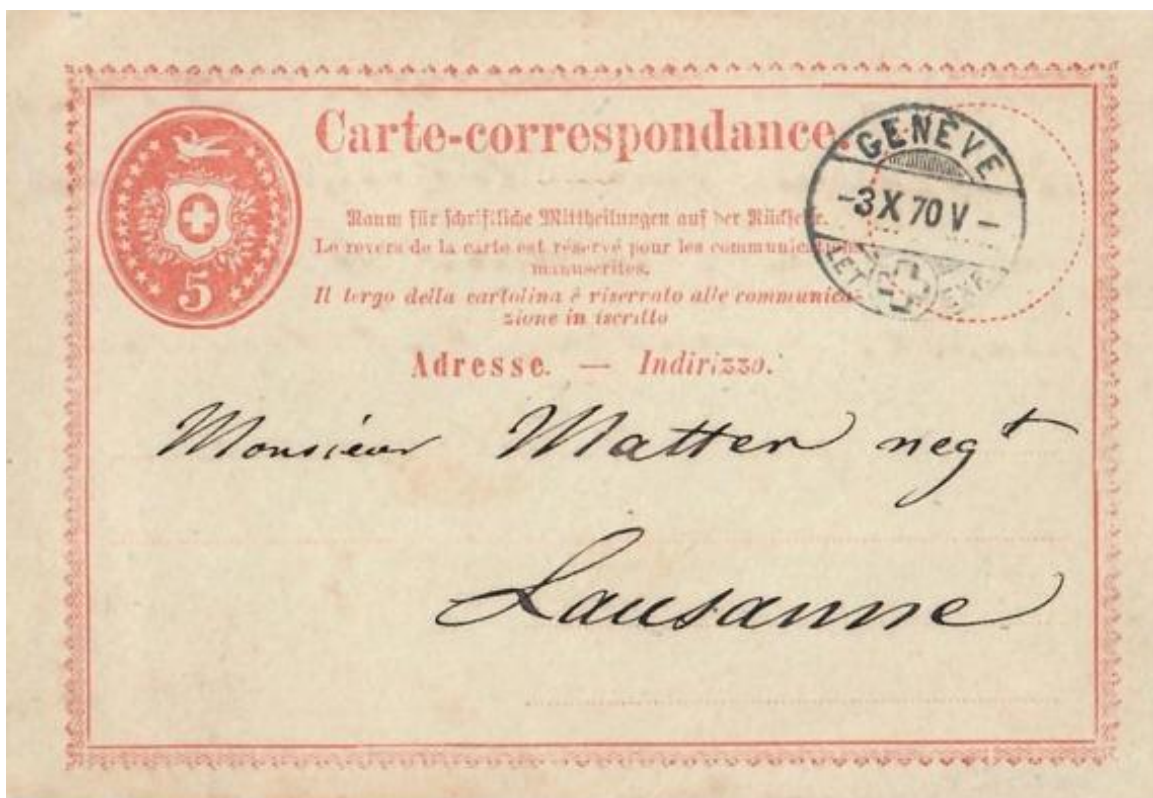 Carte-correspondance.
GENÈVE
-3 X 70 V-
LET. EXP.
Raum für schriftliche Mittheilungen auf der Rückseite.
Le revers de la carte est réservé pour les communications
manuscrites.
Il tergo della cartolina è riserrato alle communica-
zione in iscritto
5
Adresse. — Indirizzo.
Monsieur Matter negt
Lausanne